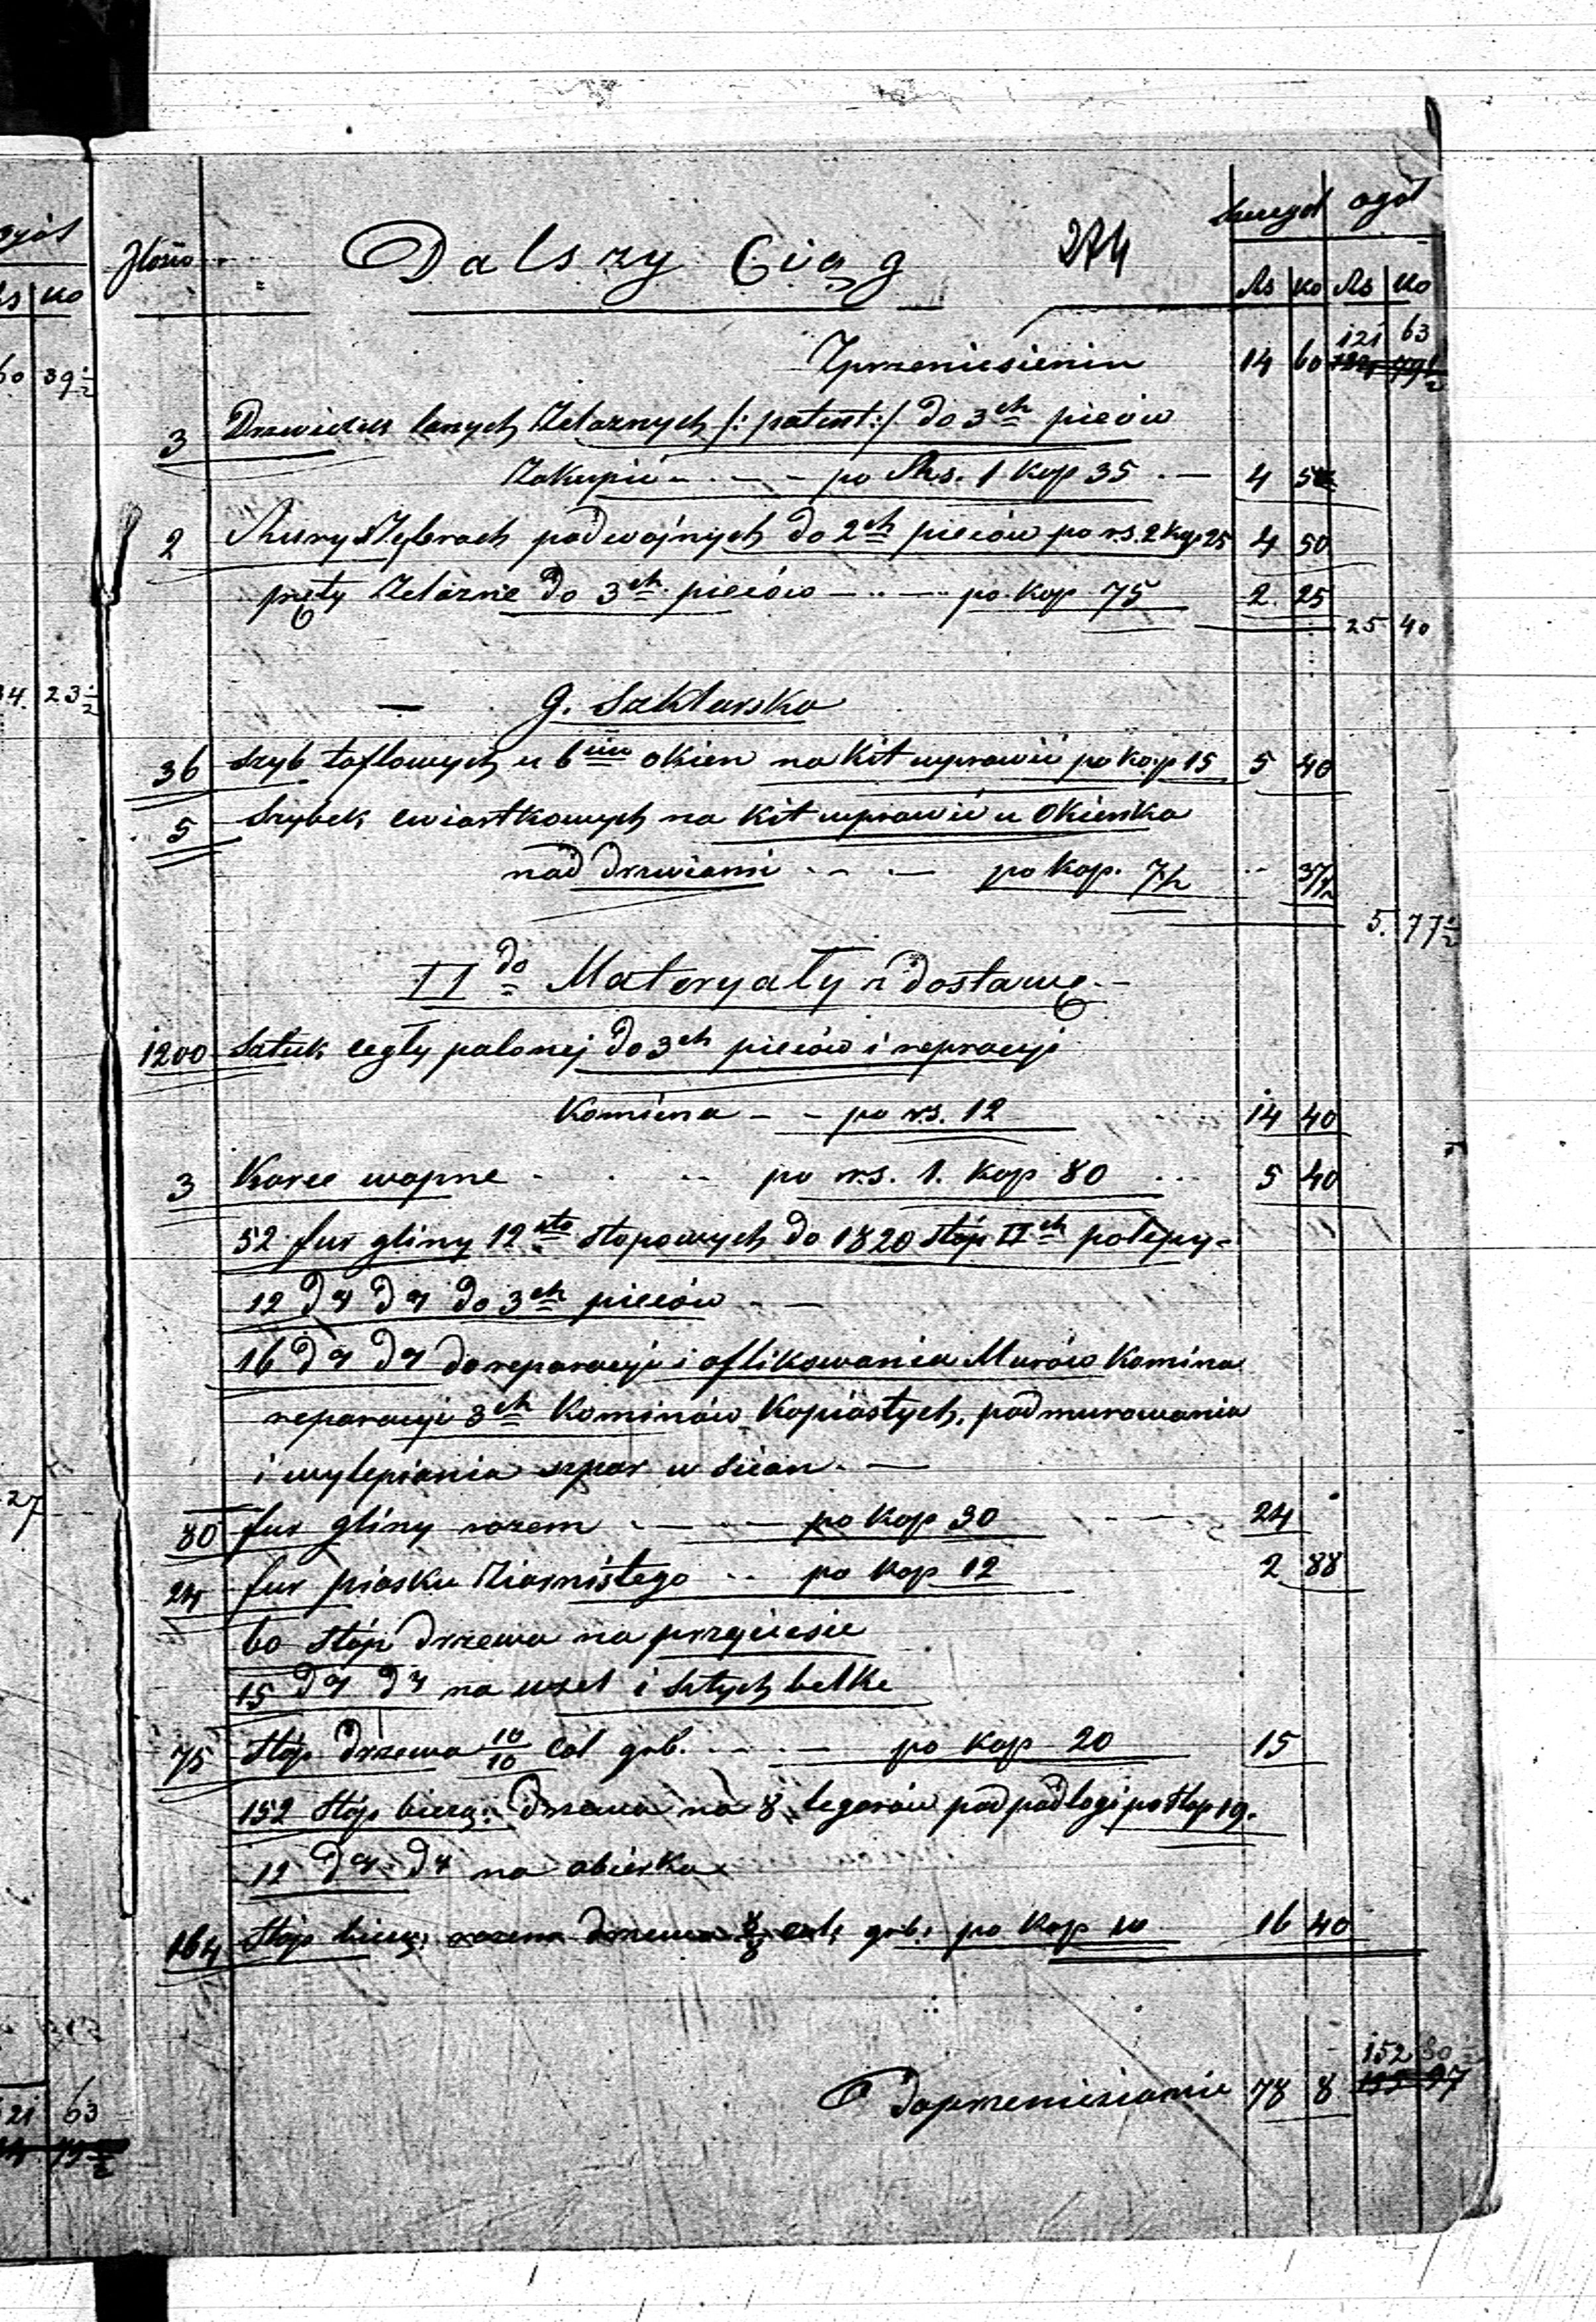 Szczegół ogół
Ilość Dalszy Ciąg 274
Rs ko Rs ko
121 63
Zprzeniesieniu 14 60
3 Drzwiczek lanych żelaznych /: patent :/ do 3ch pieców
Zakupić - - - po Rs. 1 Kop 35 - 4 5
2 Szybrach podwójnych do 2ch pieców po rs. 2 Kop 25 4 50
pręty żelazne do 3ch pieców - - - po Kop 75 2. 25
25 40
g. Szklarska
36 Szyb taflowych u 6ciu okien na Kit wprawić po kop 15 5 40
5 Szybek ćwiartkowych na Kit wprawić u Okienka
nad drzwiami - - - po Kop. 7½ - 37½
5. 77½
II do Materyały z dostawą -
1200 Sztuk cegły palonej do 3ch pieców i repracyi
Komina - - po rs. 12 14 40
3 Korce wapna - - - po rs. 1. Kop 80 ... 5 40
52 fur gliny 12sto stopowych do 1820 stóp IIch polepy -
12 do do do 3ch pieców - -
16 do do do reparacyi i oflikowania Murów Komina
reparacyi 3ch Kominów Kapiastych, podmurowania
i wylepiania szpar w ścian. -
80 fur gliny razem - - - po Kop 30 24
24 fur piasku ziarnistego - - po Kop 12 2 88
60 Stóp drzewa na przyciesie
15 do do na uszel i sztych belkę
75 Stóp drzewa 10/10 cal grb. - - - po Kop 20 15
152 Stóp bieżą: drzewa na 8 legarów pod podłogi po stop 19.
12 do do na
164 Stóp bieżą: razem drzewa 8/8 cal: grb: po Kop 10 16 40
152 80
Do przeniesienia 78 8